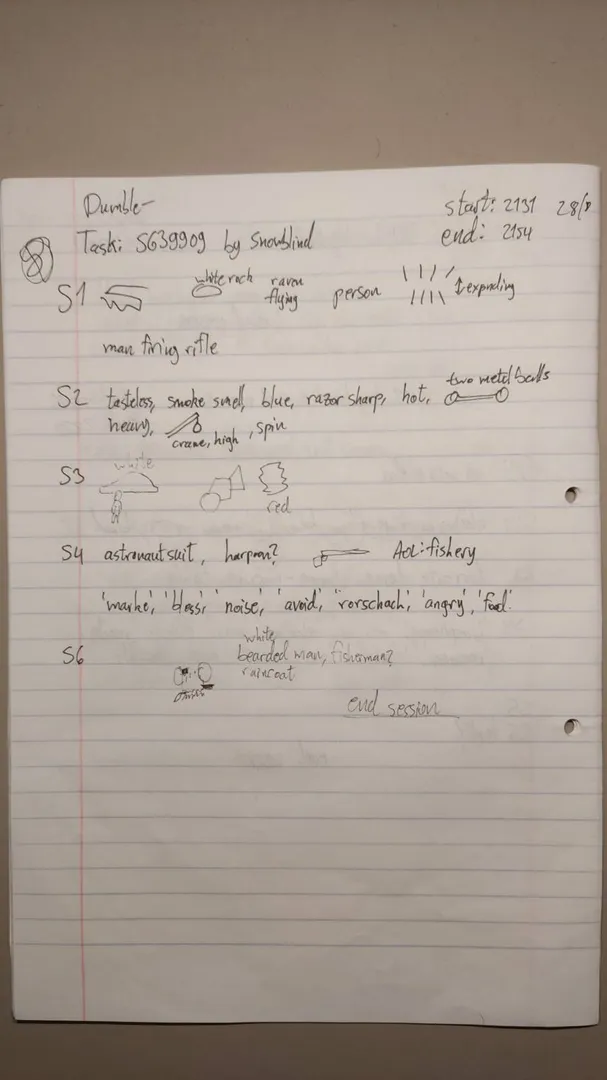 Dumble-
start: 2131 28/8
Task: S639909 by Snowblind
end: 2154
S1
white rock
raven flying
person
expanding
man firing rifle
S2 tasteless, smoke smell, blue, razor sharp, hot, two metal balls
heavy, crane, high, spin
S3
white
red
S4 astronaut suit, harpoon? AOL: fishery
'marke', 'bless', 'noise', 'avoid', 'rorschach', 'angry', 'food'.
S6
white
bearded man, fisherman?
raincoat
end session